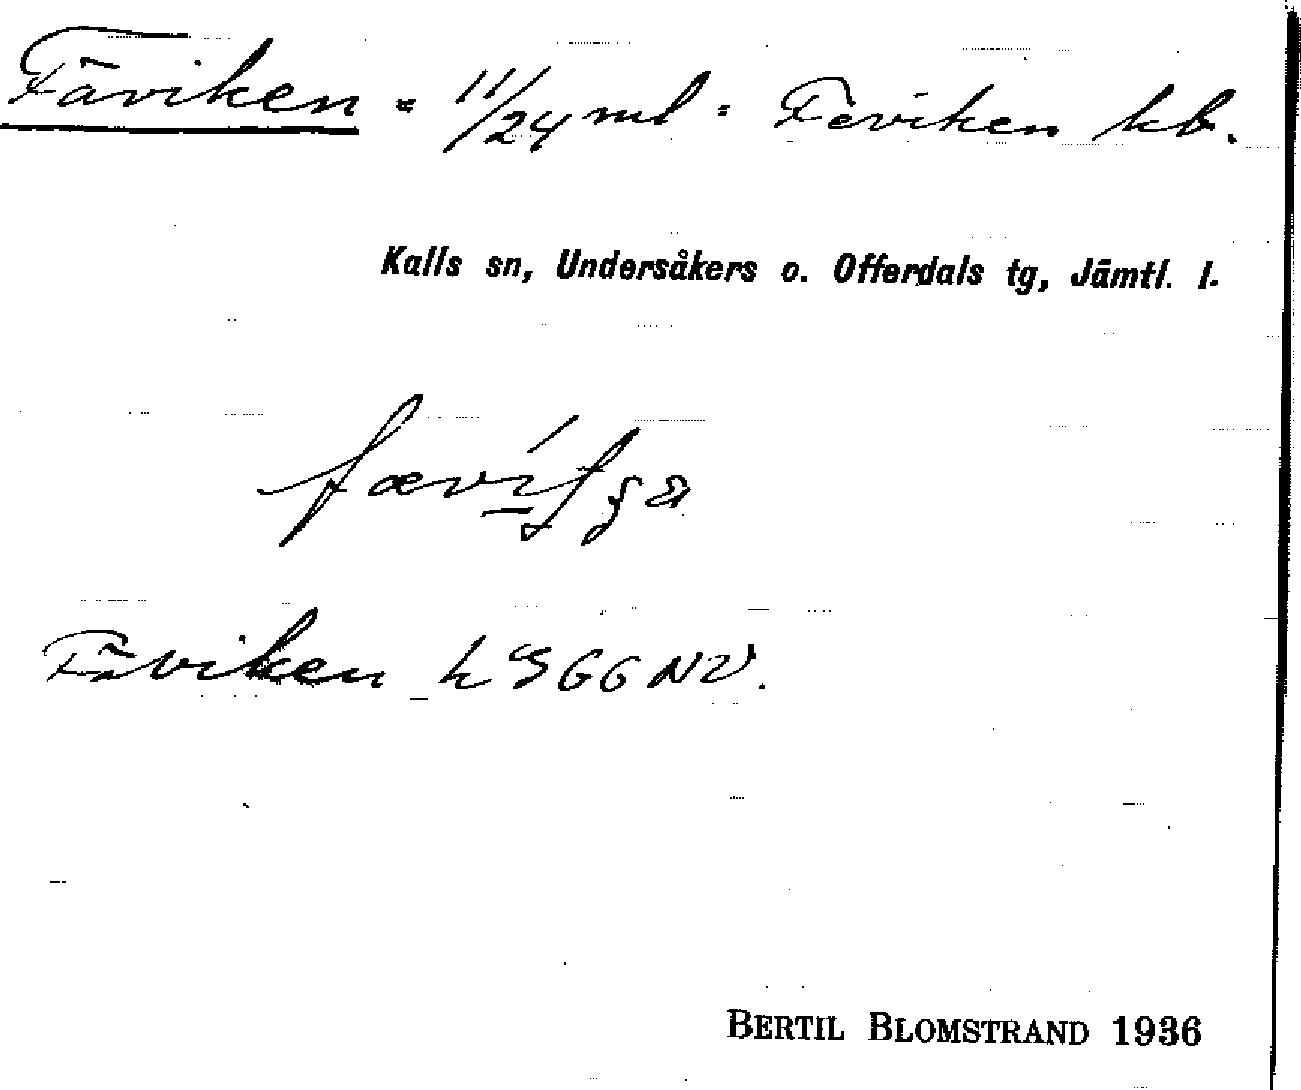 Fäviken = 11/24 ml = Feviken kb.
Kalls sn, Undersåkers o. Offerdals tg, Jämtl. l.
Fäviken
BERTIL BLOMSTRAND 1936